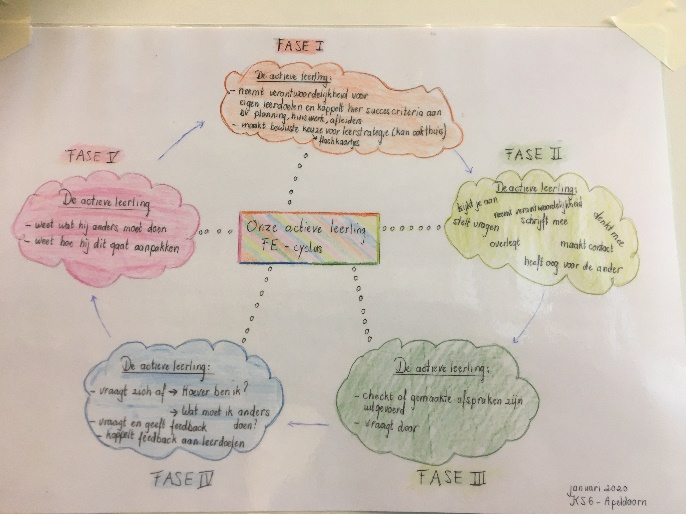 FASE I
De actieve leerling:
- neemt verantwoordelijkheid voor
eigen leerdoelen en koppelt hier succescriteria aan
bv planning, huiswerk, afleiden
- maakt bewuste keuze voor leerstrategie (kan ook thuis)
flashkaartjes
FASE II
De actieve leerling:
kijkt je aan
neemt verantwoordelijkheid
denkt mee
stelt vragen
schrijft mee
overlegt
maakt contact
heeft oog voor de ander
FASE V
De actieve leerling
- weet wat hij anders moet doen
- weet hoe hij dit gaat aanpakken
Onze actieve leerling
FE - cyclus
De actieve leerling:
- vraagt zich af → Hoever ben ik?
→ Wat moet ik anders
doen?
- vraagt en geeft feedback
- koppelt feedback aan leerdoelen
FASE IV
De actieve leerling:
- checkt of gemaakte afspraken zijn
uitgevoerd
- vraagt door
FASE III
januari 2020
KSG - Apeldoorn